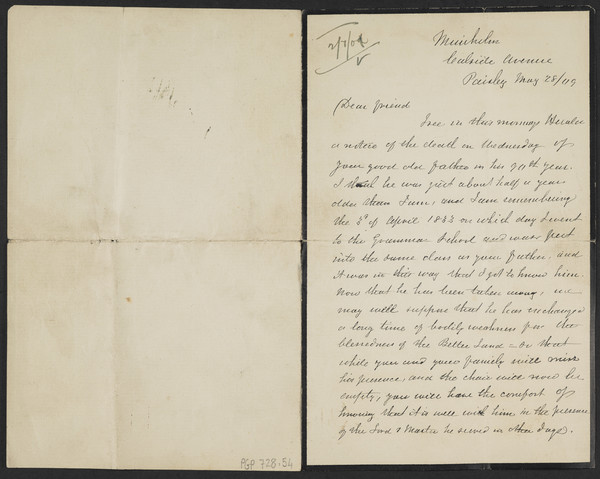 Muirholm
Calside Avenue
Paisley May 28/09
Dear friend
I see in this mornings Herald
a notice of the death on Wednesday of
your good old father in his 90th year.
I think he was just about half a year
older than I am, and I am remembering
the 3d of April 1833 on which day I went
to the Grammar School and was put
into the same class as your father, and
it was in this way that I got to know him.
Now that he has been taken away, we
may well suppose that he has exchanged
a long time of bodily weakness for the
blessedness of the Better Land - So that
while you and your family will miss
his presence and the chair will now be
empty, you will have the comfort of
knowing that it is well with him in the presence
of the Lord & Master he served in other days.
PGP 728.54